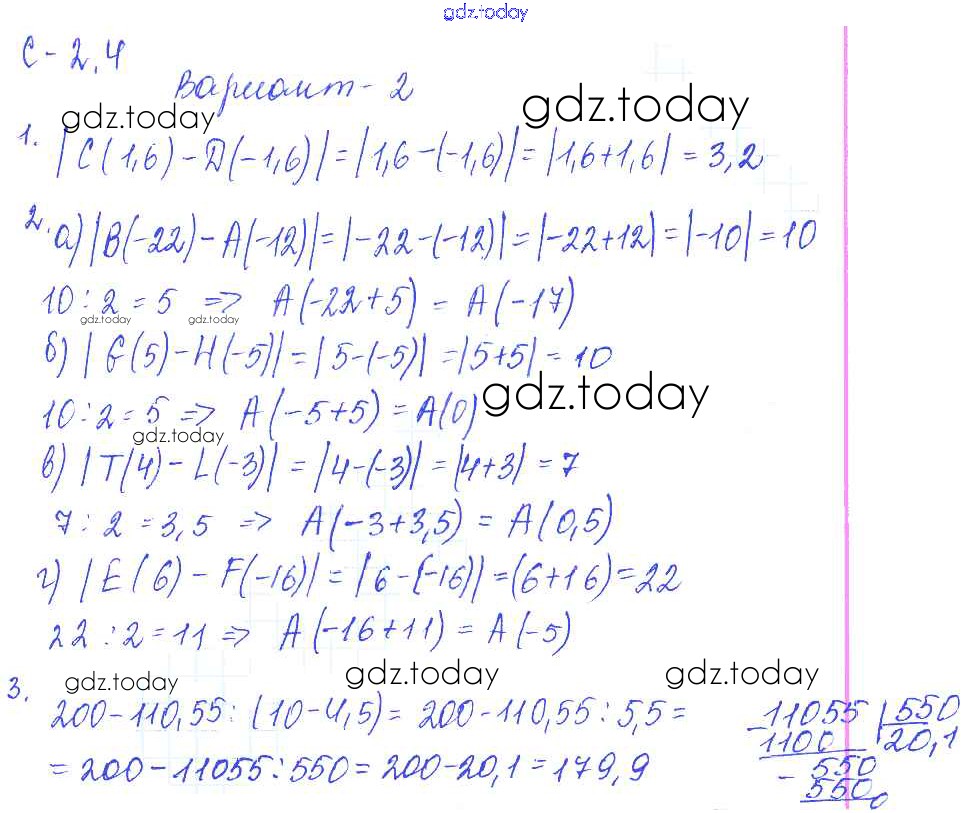 gdz.today
С - 2,4
Вариант - 2
gdz.today
gdz.today
1. |C(1,6) - D(-1,6)| = |1,6 - (-1,6)| = |1,6 + 1,6| = 3,2
2. а) |B(-22) - A(-12)| = |-22 - (-12)| = |-22 + 12| = |-10| = 10
10 : 2 = 5 => A(-22 + 5) = A(-17)
gdz.today gdz.today
б) |G(5) - H(-5)| = |5 - (-5)| = |5 + 5| = 10
gdz.today
10 : 2 = 5 => A(-5 + 5) = A(0)
gdz.today
в) |T(4) - L(-3)| = |4 - (-3)| = |4 + 3| = 7
7 : 2 = 3,5 => A(-3 + 3,5) = A(0,5)
г) |E(6) - F(-16)| = |6 - (-16)| = (6 + 16) = 22
22 : 2 = 11 => A(-16 + 11) = A(-5)
gdz.today gdz.today gdz.today
3. 200 - 110,55 : (10 - 4,5) = 200 - 110,55 : 5,5 =
= 200 - 11055 : 550 = 200 - 20,1 = 179,9
- 11055 | 550
1100 20,1
- 550
550
0